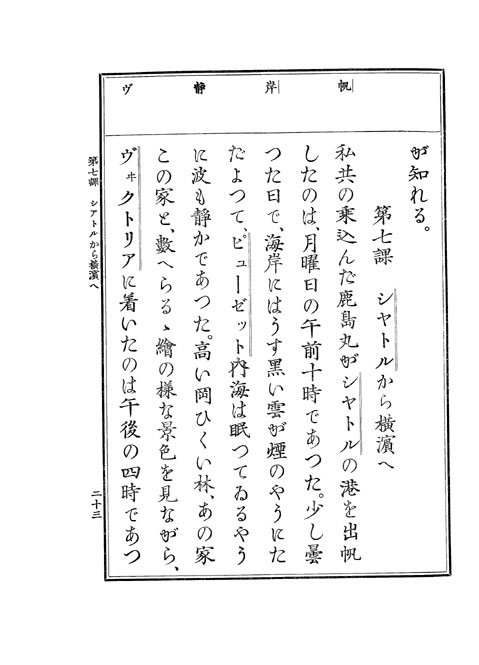 帆
岸
靜
ヴ
が知れる。
第七課 シヤトルから横濱へ
私共の乘込んだ鹿島丸がシヤトルの港を出帆
したのは、月曜日の午前十時であつた。少し曇
つた日で、海岸にはうす黒い雲が煙のやうにた
だよつて、ピューゼット內海は眠つてゐるやう
に波も靜かであつた。高い岡ひくい林、あの家
この家と、數へらるゝ繪の樣な景色を見ながら、
ヴヰクトリアに着いたのは午後の四時であつ
第七課 シアトルから横濱へ
二十三